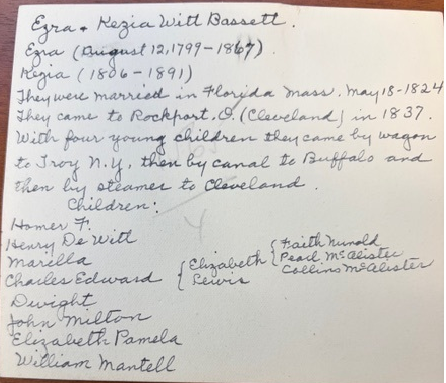 Ezra + Kezia Witt Bassett.
Ezra (August 12, 1799 - 1867).
Kezia (1806 - 1891)
They were married in Florida Mass. May 18 - 1824
They came to Rockport, O. (Cleveland) in 1837.
With four young children they came by wagon
to Troy N.Y, then by canal to Buffalo and
then by steames to Cleveland.
Children:
Homer F.
Henry De Witt
Marilla
Charles Edward { Elizabeth { Faith Nunold
Lewis Pearl McAlister
Collins McAlister
Dwight
John Milton
Elizabeth Pamela
William Mantell